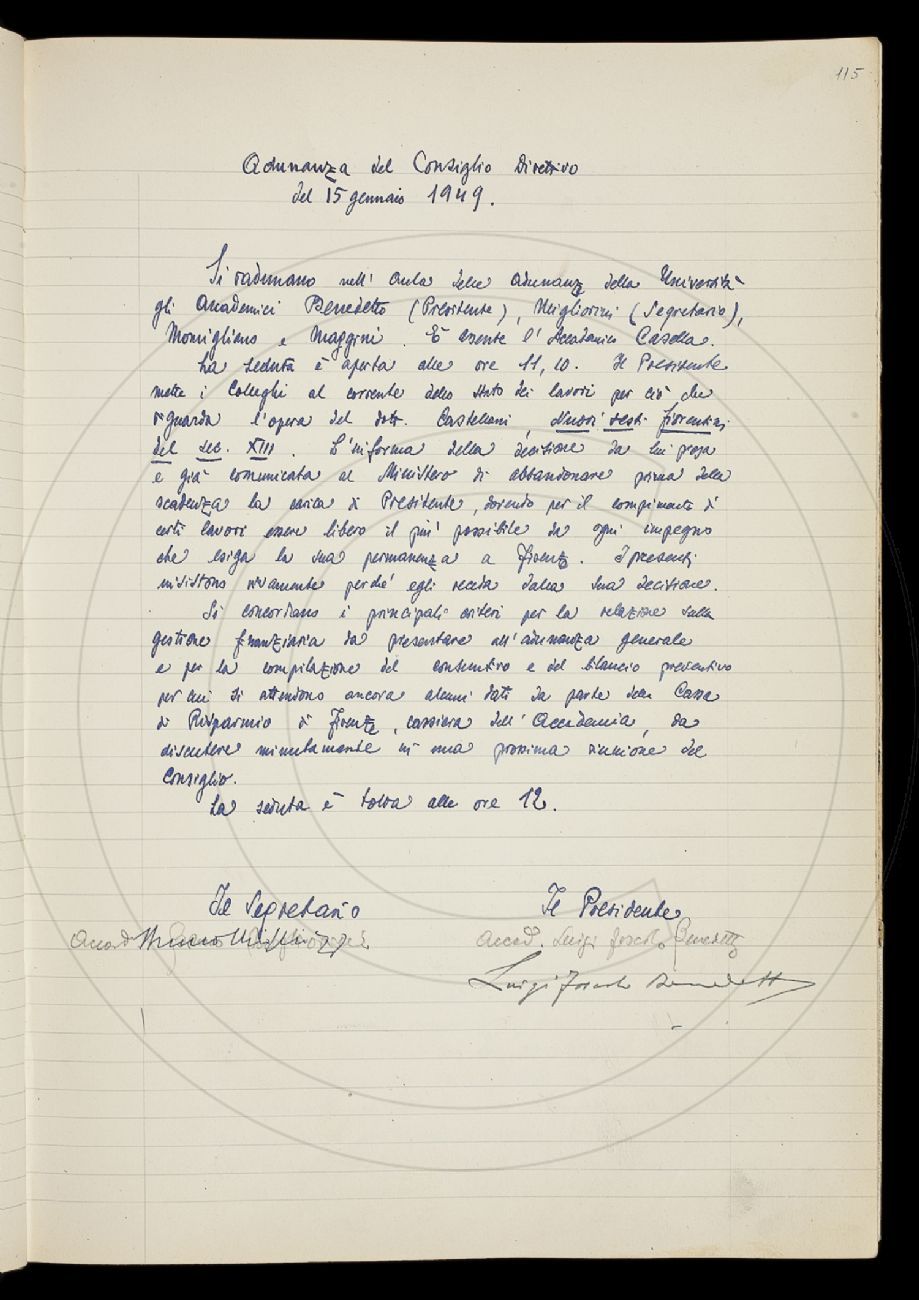 115
Adunanza del Consiglio Direttivo
del 15 gennaio 1949.
Si radunano nell' Aula delle adunanze della Università
gli Accademici Benedetto (Presidente), Migliorini (Segretario),
Momigliano e Maggini. È assente l' Accademico Casella.
La seduta è aperta alle ore 11,10. Il Presidente
mette i Colleghi al corrente dello stato dei lavori per ciò che
riguarda l'opera del dott. Castellani, Nuovi testi fiorentini
del sec. XIII. L'informa della decisione da lui presa
e già comunicata al Ministero di abbandonare prima della
scadenza la carica di Presidente, dovendo per il compimento di
certi lavori essere libero il più possibile da ogni impegno
che esiga la sua permanenza a Firenze. I presenti
insistono vivamente perché egli receda dalla sua decisione.
Si concordano i principali criteri per la relazione sulla
gestione finanziaria da presentare all'adunanza generale
e per la compilazione del consuntivo e del bilancio preventivo
per cui si attendono ancora alcuni dati da parte della Cassa
di Risparmio di Firenze, cassiera dell'Accademia, da
discutere minutamente in una prossima riunione del
Consiglio.
La seduta è tolta alle ore 12.
Il Segretario Il Presidente
Accad. Bruno Migliorini Accad. Luigi Foscolo Benedetto
Luigi Foscolo Benedetto